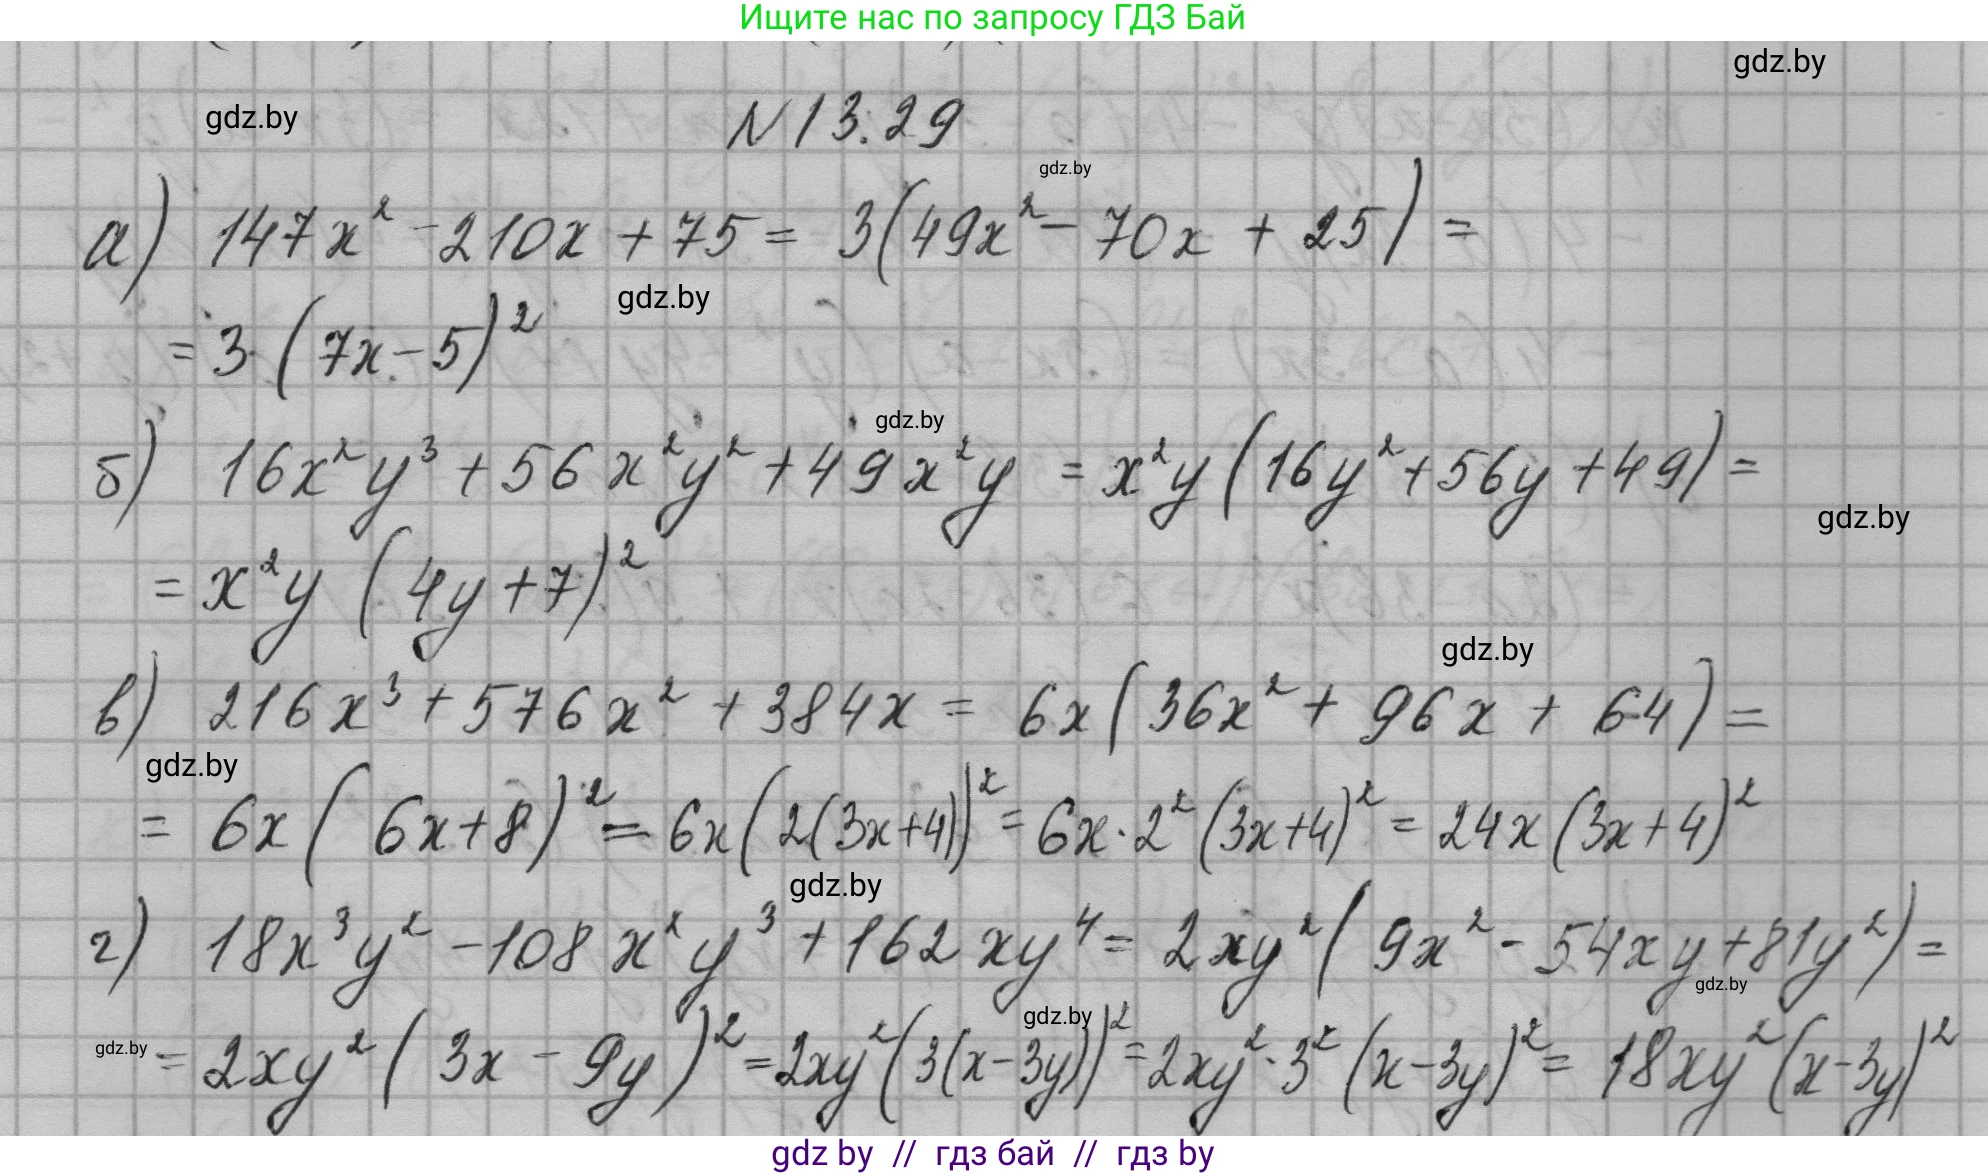 Ищите нас по запросу ГДЗ Бай
gdz.by
gdz.by
N 13.29
gdz.by
а) 147x² - 210x + 75 = 3(49x² - 70x + 25) =
gdz.by
= 3 · (7x - 5)²
gdz.by
б) 16x²y³ + 56x²y² + 49x²y = x²y(16y² + 56y + 49) =
gdz.by
= x²y (4y + 7)²
gdz.by
в) 216x³ + 576x² + 384x = 6x(36x² + 96x + 64) =
gdz.by
= 6x(6x + 8)² = 6x(2(3x + 4))² = 6x · 2²(3x + 4)² = 24x(3x + 4)²
gdz.by
г) 18x³y² - 108x²y³ + 162xy⁴ = 2xy²(9x² - 54xy + 81y²) =
gdz.by
gdz.by
gdz.by
= 2xy²(3x - 9y)² = 2xy²(3(x - 3y))² = 2xy² · 3²(x - 3y)² = 18xy²(x - 3y)²
gdz by // гдз бай // гдз by